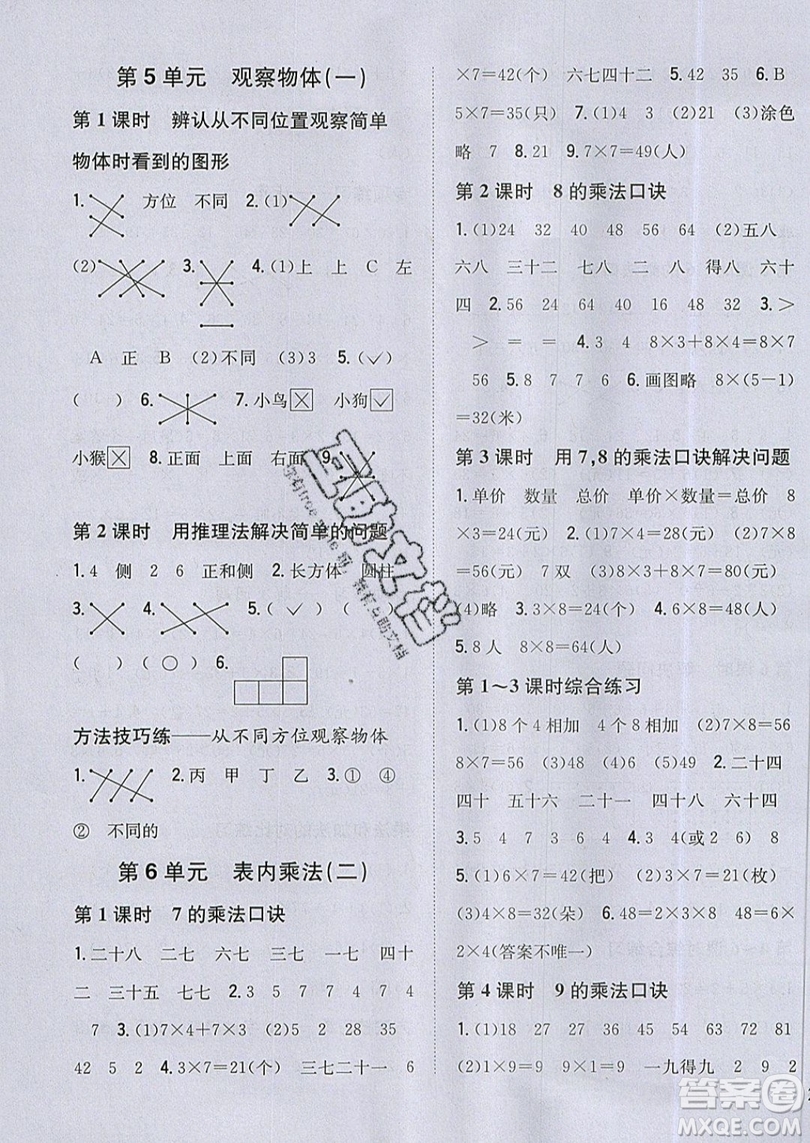 第5单元 观察物体(一)
第1课时 辨认从不同位置观察简单
物体时看到的图形
1. 方位 不同 2.(1)
(2) 3. 4.(1)上 上 C 左
A 正 B (2)不同 (3)3 5.(✓)
( ) ( ) 6. 7.小鸟☒ 小狗☑
小猴☒ 8.正面 上面 右面 9.
第2课时 用推理法解决简单的问题
1.4 侧 2 6 正和侧 2.长方体 圆柱
3. 4. 5.( )
( ) (○) 6.
方法技巧练——从不同方位观察物体
1. 2.丙 甲 丁 乙 3.① ④
② 不同的
第6单元 表内乘法(二)
第1课时 7的乘法口诀
1.二十八 二七 六七 三七 一七 四十
二 三十五 七七 2.3 5 7 4 7 4
4 7 3.(1)7×4+7×3 (2)5 2 28 35
42 5 2 4.3×7=21(个) 三七二十一 6
×7=42(个) 六七四十二 5.42 35 6.B
5×7=35(只) 7.(1)21 (2)略 (3)涂色
略 7 8.21 9.7×7=49(人)
第2课时 8的乘法口诀
1.(1)24 32 40 48 56 64 (2)五八
六八 三十二 七八 二 八 得八 六十
四 2.56 24 64 40 16 48 32 3.>
> = = 4.8 8×3+8×4=8×7
56 5.8 7 8 6 6.画图略 8×(5-1)
=32(米)
第3课时 用7,8的乘法口诀解决问题
1.单价 数量 总价 单价×数量=总价 8
×3=24(元) 2.(1)4×7=28(元) (2)7×8
=56(元) 7 双 (3)8×7=56(元)
(4)略 3.3×8=24(元) 4.6×8=48(人)
5.8人 8×8=64(人)
第1~3课时综合练习
1.(1)8个4相加 4个8相加 (2)7×8=56
8×7=56 (3)48 (4)6 2.二十四 四
四十 五十六 二十一 四十八 四十二
3.5 4 8 5 4 3 4.3(或2 6) 7 8 2
5.(1)6×7=42(把) (2)3×7=21(枚)
(3)4×8=32(朵) 6.48=2×3×8 48=6×
2×4(答案不唯一)
第4课时 9的乘法口诀
1.(1)18 27 27 36 45 54 63 72 81
(2)1×9=9 9×1=9 一九得九 2 9 2
互助文档
答案圈
MXQE.COM